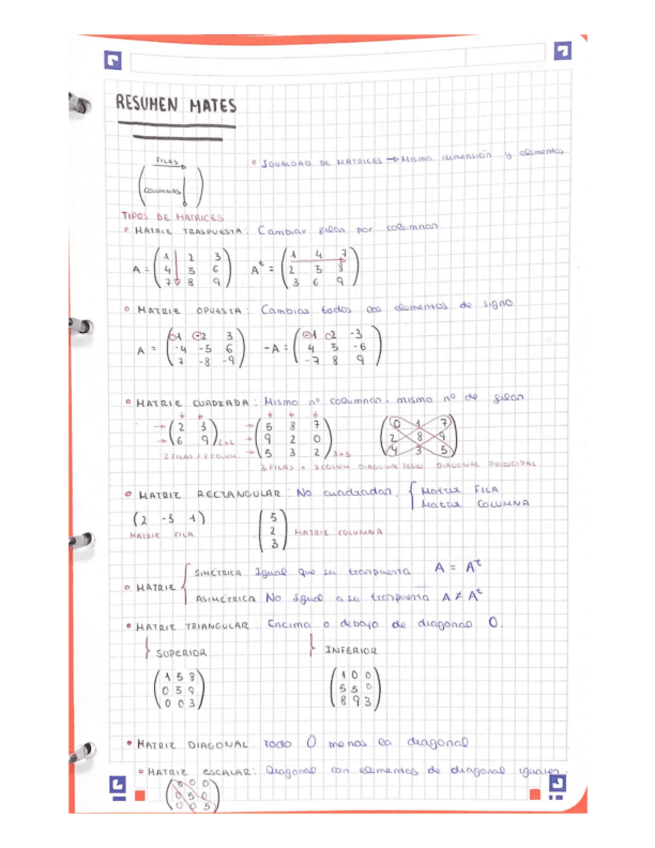 RESUMEN MATES
FILAS
COLUMNAS
° IGUALDAD DE MATRICES → Misma dimensión y elementos
TIPOS DE MATRICES
° MATRIZ TRASPUESTA: Cambiar filas por columnas.
A = (1 2 3
4 5 6
7 8 9)
Aᵗ = (1 4 7
2 5 8
3 6 9)
° MATRIZ OPUESTA: Cambias todos los elementos de signo
A = 2 3
-4 -5 6
7 -8 -9
-A = 2 -3
4 5 -6
-7 8 9
° MATRIZ CUADRADA: Mismo nº columnas, mismo nº de filas
(2 3
6 9) 2x2
(5 8 7
9 2 0
5 3 2) 3x3
(0 1 7
2 8 9
4 3 5)
2 FILAS x 2 COLUM
3 FILAS x 3 COLUM DIAGONAL DIAGONAL PRINCIPAL
° MATRIZ RECTANGULAR: No cuadradas. { Matriz FILA
Matriz COLUMNA
(2 -3 1)
MATRIZ FILA
(5
2
3) MATRIZ COLUMNA
° MATRIZ { SIMÉTRICA Igual que su traspuesta A = Aᵗ
ASIMÉTRICA No igual a su traspuesta A ≠ Aᵗ
° MATRIZ TRIANGULAR. Encima o debajo de diagonal 0.
SUPERIOR
INFERIOR
(1 5 8
0 5 9
0 0 3)
(1 0 0
5 5 0
8 9 3)
° MATRIZ DIAGONAL. Todo 0 menos la diagonal
° MATRIZ ESCALAR: Diagonal con elementos de diagonal iguales.
(5 0 0
0 5 0
0 0 5)